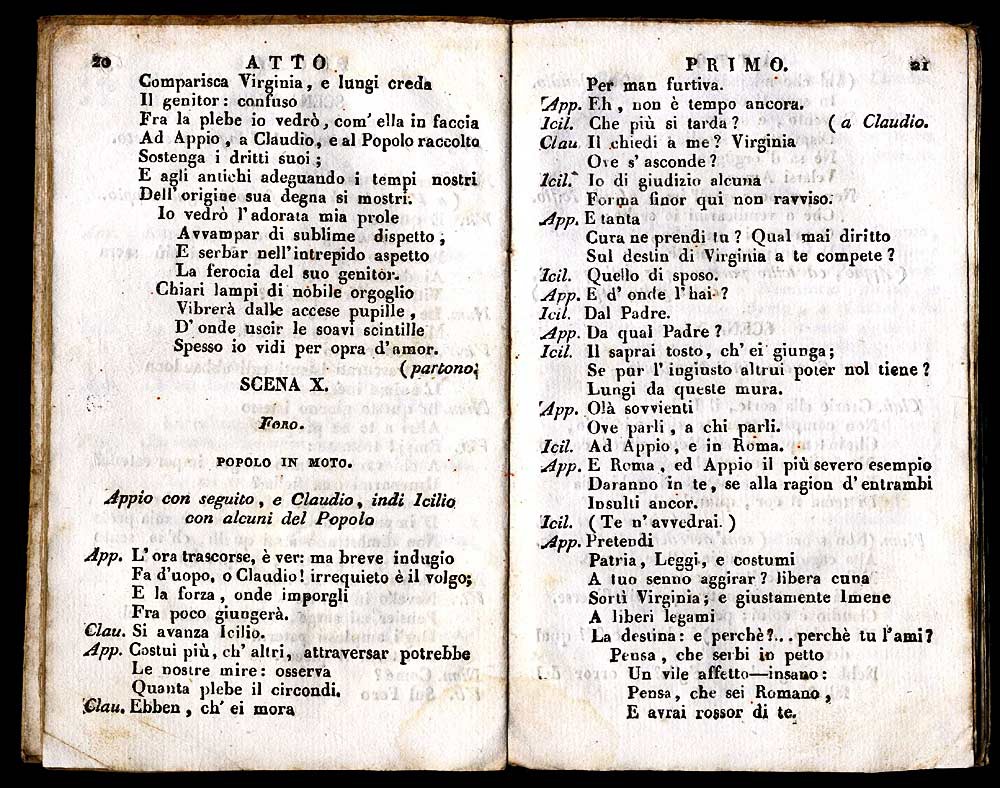 20 ATTO
Comparisca Virginia, e lungi creda
Il genitor: confuso
Fra la plebe io vedrò, com' ella in faccia
Ad Appio, a Claudio, e al Popolo raccolto
Sostenga i dritti suoi;
E agli antichi adeguando i tempi nostri
Dell' origine sua degna si mostri.
Io vedrò l'adorata mia prole
Avvampar di sublime dispetto;
E serbar nell'intrepido aspetto
La ferocia del suo genitor.
Chiari lampi di nobile orgoglio
Vibrerà dalle accese pupille,
D' onde uscir le soavi scintille
Spesso io vidi per opra d'amor.
(partono;
SCENA X.
Foro.
POPOLO IN MOTO.
Appio con seguito, e Claudio, indi Icilio
con alcuni del Popolo
App. L' ora trascorse, è ver: ma breve indugio
Fa d'uopo, o Claudio! irrequieto è il volgo;
E la forza, onde imporgli
Fra poco giungerà.
Clau. Si avanza Icilio.
App. Costui più, ch' altri, attraversar potrebbe
Le nostre mire: osserva
Quanta plebe il circondi.
Clau. Ebben, ch' ei mora
PRIMO. 21
Per man furtiva.
App. Eh, non è tempo ancora.
Icil. Che più si tarda? (a Claudio.
Clau Il chiedi a me? Virginia
Ove s' asconde?
Icil. Io di giudizio alcuna
Forma finor qui non ravviso.
App. E tanta
Cura ne prendi tu? Qual mai diritto
Sul destin di Virginia a te compete?
Icil. Quello di sposo.
App. E d' onde l'hai?
Icil. Dal Padre.
App. Da qual Padre?
Icil. Il saprai tosto, ch' ei giunga;
Se pur l' ingiusto altrui poter nol tiene?
Lungi da queste mura.
App. Olà sovvienti
Ove parli, a chi parli.
Icil. Ad Appio, e in Roma.
App. E Roma, ed Appio il più severo esempio
Daranno in te, se alla ragion d'entrambi
Insulti ancor.
Icil. (Te n' avvedrai.)
App. Pretendi
Patria, Leggi, e costumi
A tuo senno aggirar? libera cuna
Sortì Virginia; e giustamente Imene
A liberi legami
La destina: e perchè?... perchè tu l'ami?
Pensa, che serbi in petto
Un vile affetto—insano:
Pensa, che sei Romano,
E avrai rossor di te.